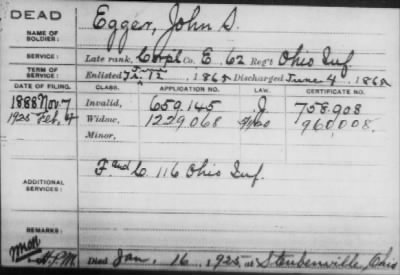 DEAD
NAME OF SOLDIER: Egger, John S.
SERVICE: Late rank, Corpl Co. E, 62 Reg't Ohio Inf.
TERM OF SERVICE: Enlisted 12, 1865 Discharged June 4, 1865
DATE OF FILING. CLASS. APPLICATION NO. LAW. CERTIFICATE NO.
1888 Nov. 7 Invalid, 659.145 J 758.908
1925 Feb. Widow, 1229068 960,008.
Minor,
ADDITIONAL SERVICES: F 116 Ohio Inf.
REMARKS:
Died Jan. 16, 1925, at Steubenville, Ohio